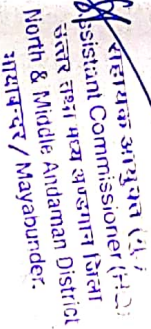 सहायक आयुक्त
Assistant Commissioner (HQ)
उत्तर तथा मध्य अण्डमान जिला
North & Middle Andaman District
मायाबन्दर / Mayabunder.